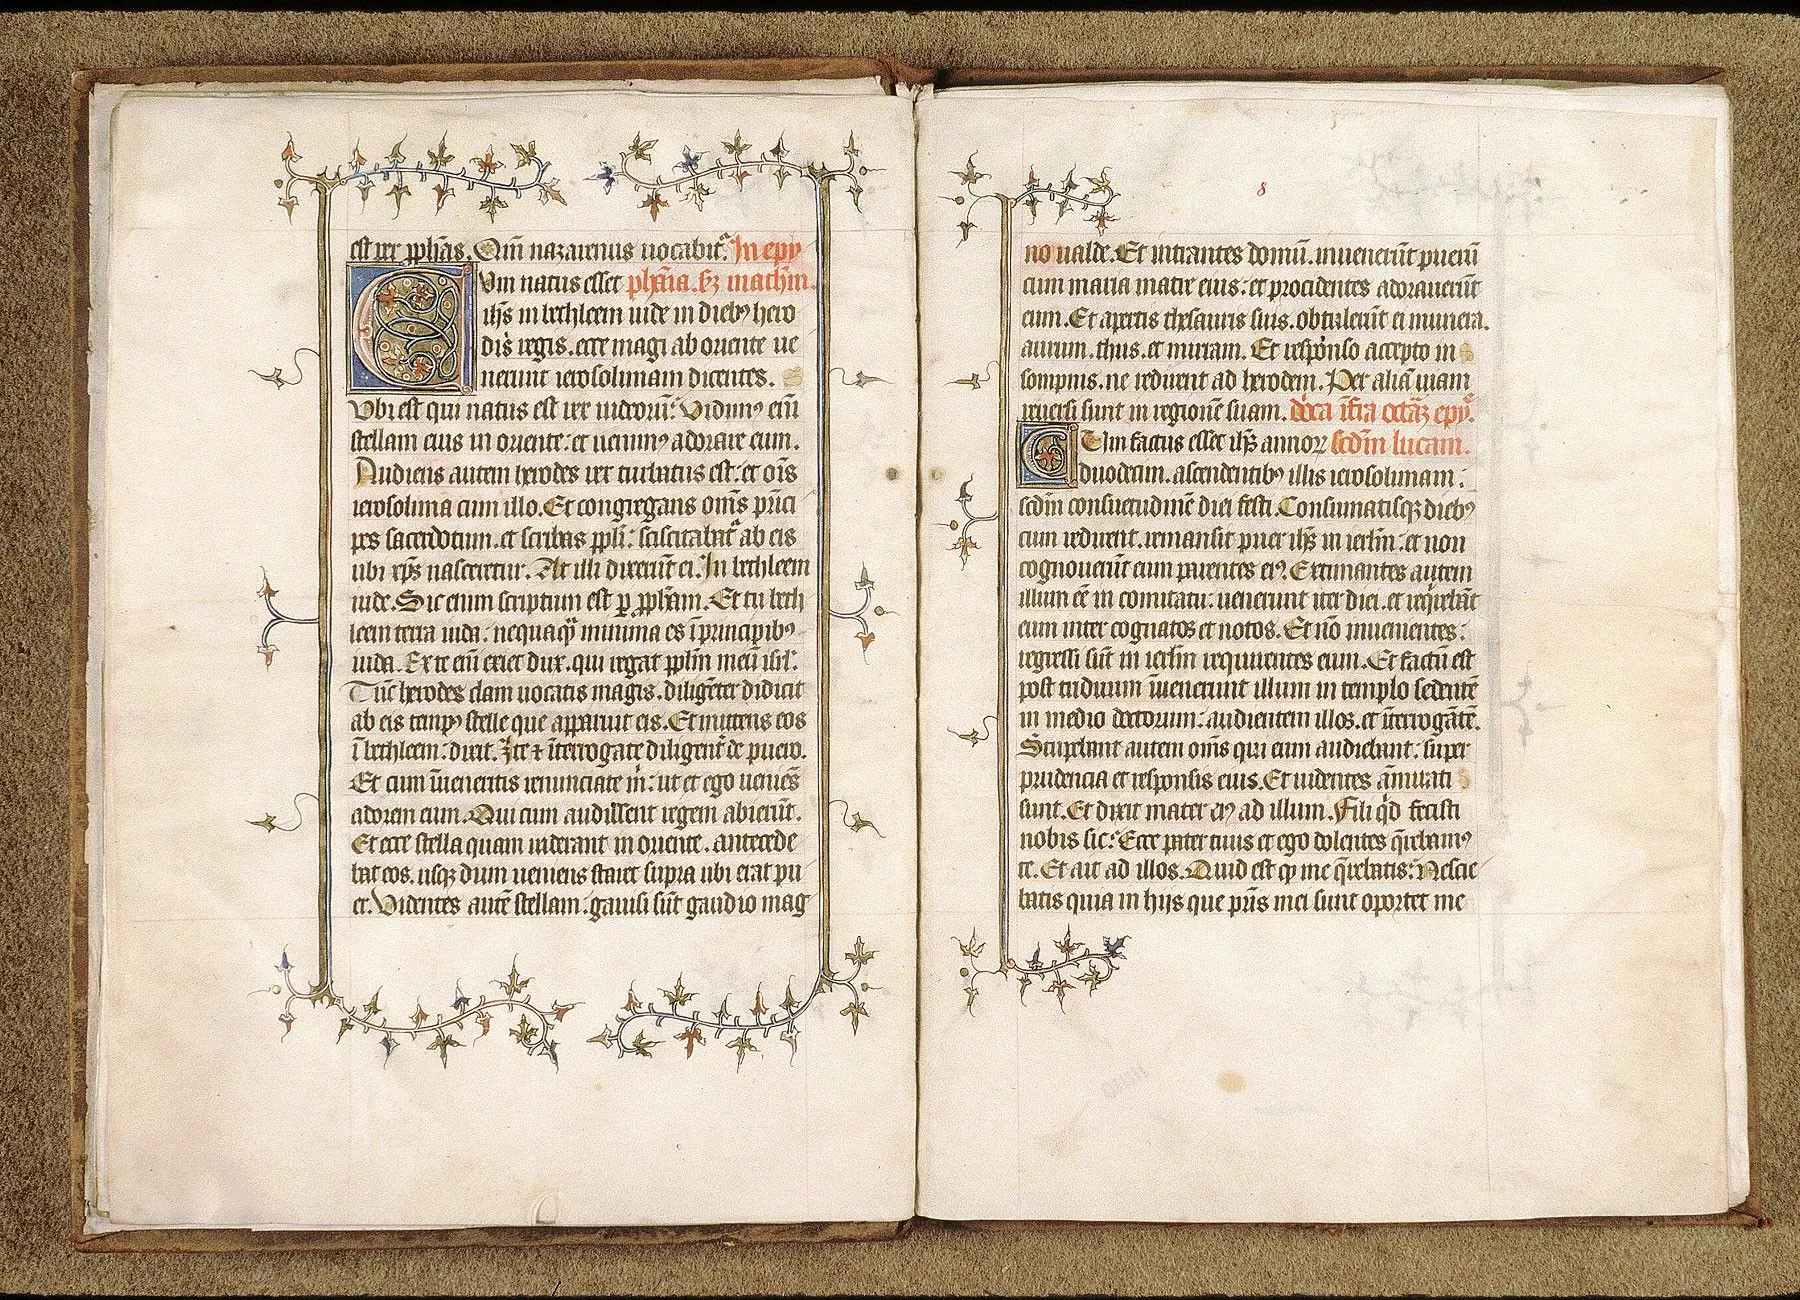 est per pphãs. Qm̃ nazarenus uocabitᷣ. In epy
Cum natus esset phãia. sz̃ mathm̃.
ihs̃ in bethleem iude in dieb9 hero
dis regis. ecce magi ab oriente ue
nerunt ierosolimam dicentes.
Vbi est qui natus est rex iudeoruz̃: Vidim9 eni̅
stellam eius in oriente: et uenim9 adorare eum.
Audiens autem herodes rex turbatus est: et oi̅s
ierosolima cum illo. Et congregans om̅s pͥnci
pes sacerdotum. et scribas ppl̅i: sciscitabatᷣ ab eis
ubi xp̅s nasceretur. At illi dixerut̅ ei. In bethleem
iude. Sic enim scriptum est ꝑ pph̅am. Et tu beth
leem terra iuda: nequaqᷓ minima es i̅ principib9
iuda. Ex te eni̅ exiet dux. qui regat ppl̅m meu̅ isrl̅:
Tu̅c herodes clam uocatis magis. dilige̅ter didicit
ab eis temp9 stelle que apparuit eis. Et mittens eos
i̅ bethleem: dixit. Ite ⁊ i̅terrogate diligent̅ de puero.
Et cum i̅ueneritis renunciate mͥ: ut et ego uenie̅s
adorem eum. Qui cum audissent regem abieru̅t.
Et ecce stella quam uiderant in oriente. antecede
bat eos. usqꝫ dum ueniens staret supra ubi erat pu
er. Videntes aute̅ stellam: gauisi su̅t gaudio mag
8
no ualde. Et intrantes domu̅. inueneru̅t pueru̅
cum maria matre eius: et procidentes adorauerut̅
eum. Et apertis thesauris suis. obtuleru̅t ei munera.
aurum. thus. et mirram. Et respo̅nso accepto in
sompnis. ne redirent ad herodem. Per alia̅ uiam
reuersi sunt in regione̅ suam. dn̅ca i̅fra octa̅ꝫ epy.
Cum factus esset ihs̅ annoꝝ scd̅m lucam.
duodecim. ascendentib9 illis ierosolimam:
scd̅m consuetudine̅ diei festi. Consumatisqꝫ dieb9
cum redirent. remansit puer ihs̅ in ierlm̅: et non
cognouerut̅ eum parentes ei9. Extimantes autem
illum ee̅ in comitatu: uenerunt iter diei. et reqͥreba̅t
eum inter cognatos et notos. Et no̅ inuenientes:
regressi su̅t in ierlm̅ requirentes eum. Et factu̅ est
post triduum i̅uenerunt illum in templo sedente̅
in medio doctorum: audientem illos. et i̅terroga̅te̅.
Stupebant autem om̅s qui eum audiebant: super
prudencia et responsis eius. Et uidentes a̅mirati
sunt. Et dixit mater ei9 ad illum. Fili qͥd fecisti
nobis sic: Ecce pater tuus et ego dolentes qͣrebam9
te. Et ait ad illos. Quid est qꝫ me qͣrebatis: Nescie
batis quia in hiis que pr̅is mei sunt oportet me